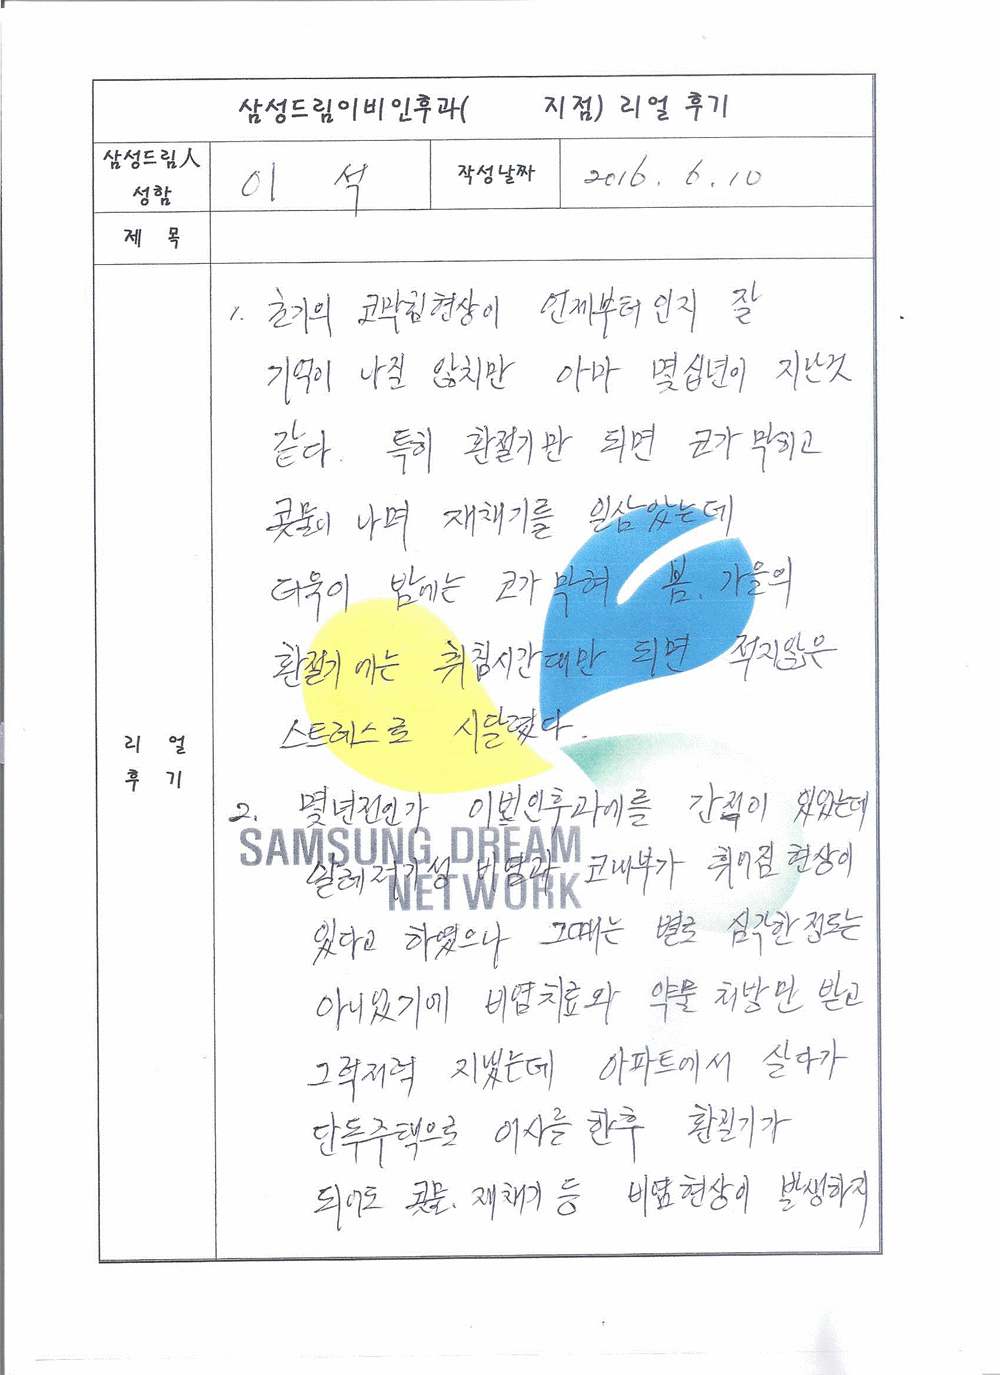 삼성드림이비인후과( 지점) 리얼 후기
삼성드림人
성함
이 석
작성날짜
2016. 6. 10
제 목
리 얼
후 기
1. 초기의 코막힘현상이 언제부터인지 잘
기억이 나질 않치만 아마 몇십년이 지난것
같다. 특히 환절기만 되면 코가 막히고
콧물이 나며 재채기를 일삼았는데
더욱이 밤에는 코가 막혀 봄, 가을의
환절기에는 취침시간대만 되면 적지않은
스트레스로 시달렸다.
2. 몇년전인가 이빈인후과에를 간적이 있었는데
알레저기성 비염과 코내부가 휘어짐 현상이
있다고 하였으나 그때는 별로 심각한 정도는
아니였기에 비염치료와 약물 처방만 받고
그럭저럭 지냈는데 아파트에서 살다가
단독주택으로 이사를 한후 환절기가
되어도 콧물, 재채기 등 비염현상이 발생하지
SAMSUNG DREAM
NETWORK